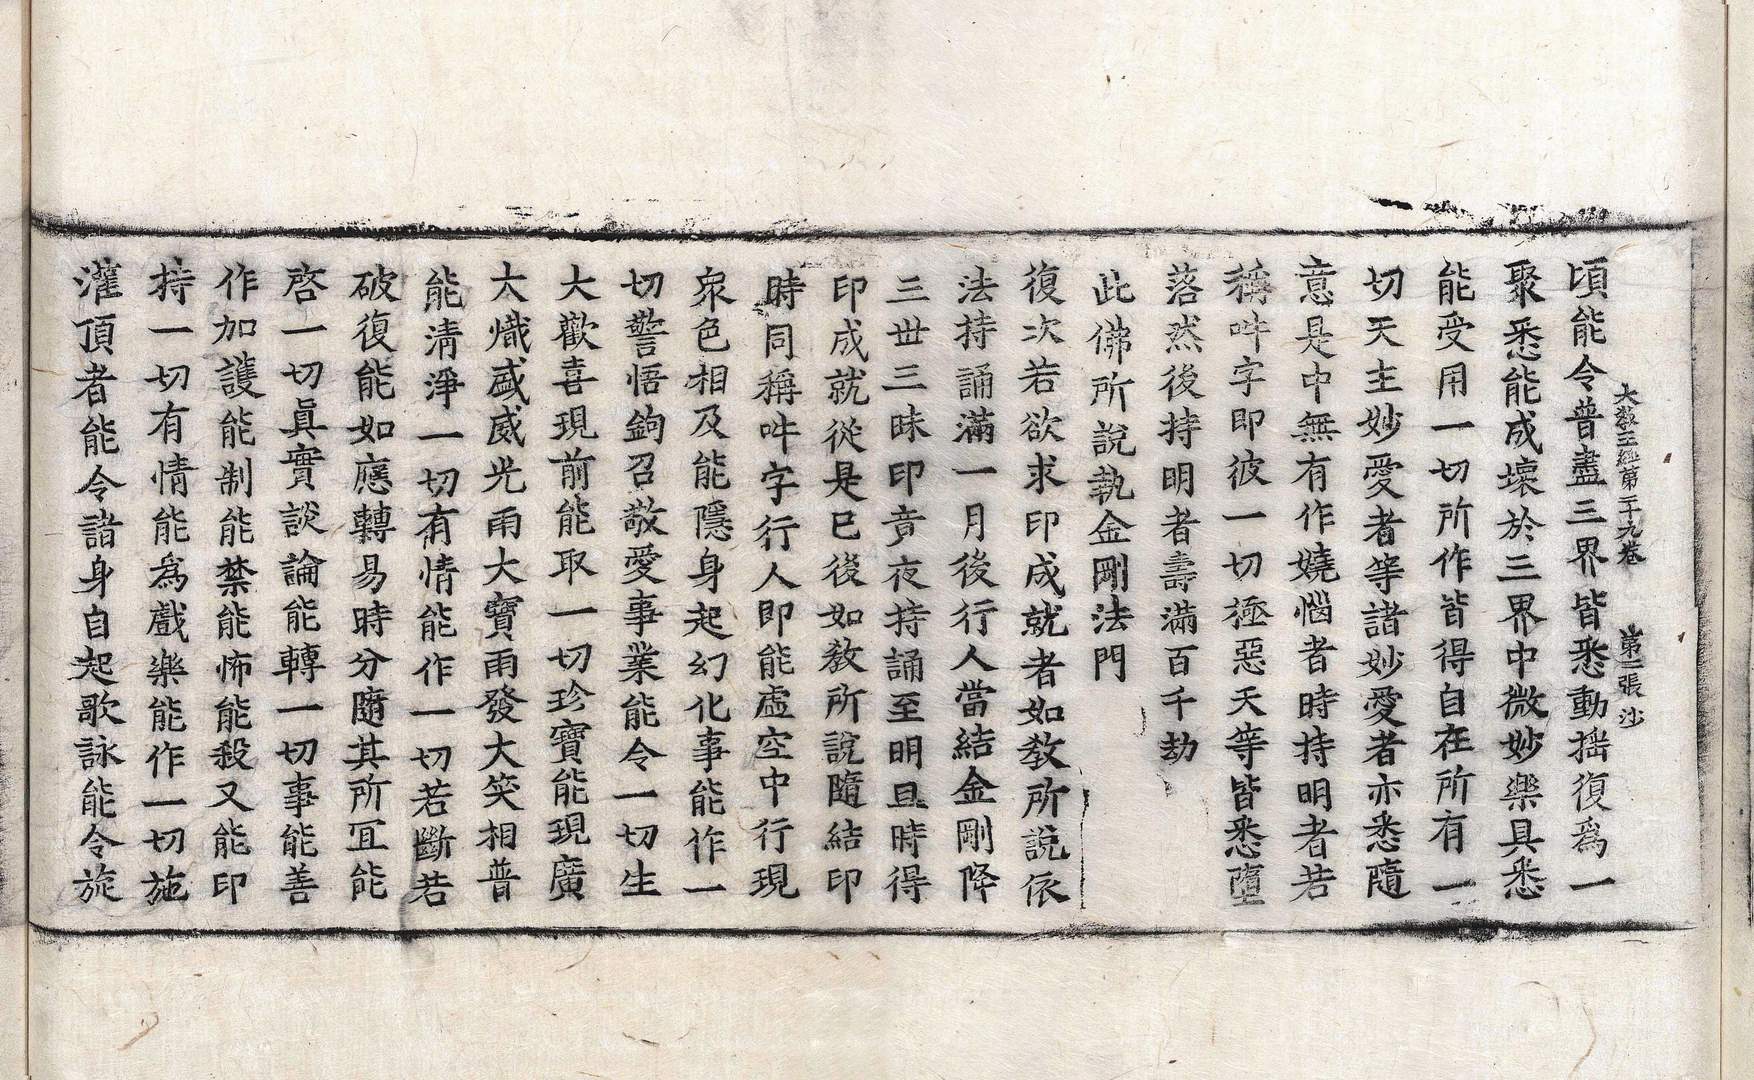 大教王經第二十九卷 第二張 沙
頃能令普盡三界皆悉動揺復爲一
聚悉能成壞於三界中微妙樂具悉
能受用一切所作皆得自在所有一
切天主妙愛者等諸妙愛者亦悉隨
意是中無有作嬈惱者時持明者若
稱吽字即彼一切極惡天等皆悉墮
落然後持明者壽滿百千劫
此佛所說執金剛法門
復次若欲求印成就者如教所說依
法持誦滿一月後行人當結金剛降
三世三昧印竟夜持誦至明旦時得
印成就從是已後如教所說隨結印
時同稱吽字行人即能虛空中行現
衆色相及能隱身起幻化事能作一
切警悟鉤召敬愛事業能令一切生
大歡喜現前能取一切珍寶能現廣
大熾盛威光雨大寶雨發大笑相普
能清淨一切有情能作一切若斷若
破復能如應轉易時分隨其所冝能
啓一切眞實談論能轉一切事能善
作加護能制能禁能怖能殺又能印
持一切有情能爲戲樂能作一切施
灌頂者能令諸身自起歌詠能令旋